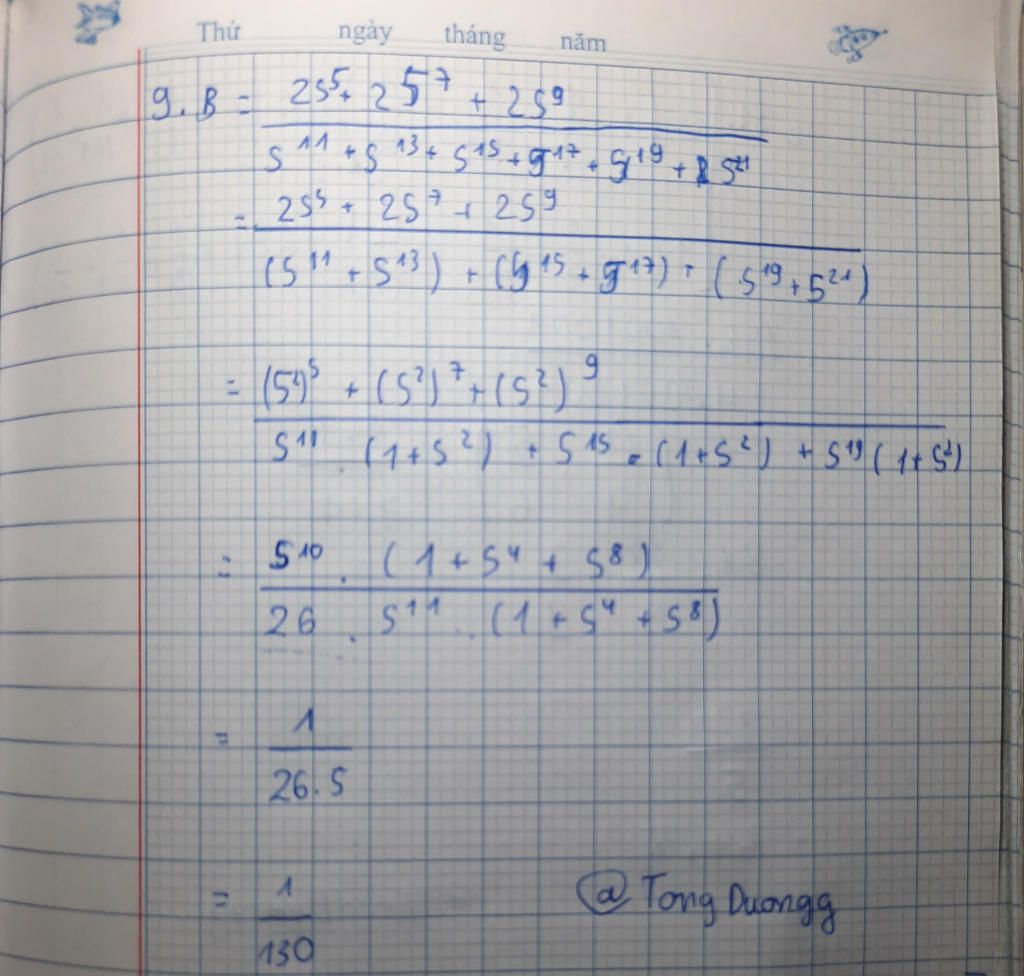 Thứ ngày tháng năm
9. B = \frac{25^5 + 25^7 + 25^9}{5^{11} + 5^{13} + 5^{15} + 5^{17} + 5^{19} + 5^{21}}
= \frac{25^5 + 25^7 + 25^9}{(5^{11} + 5^{13}) + (5^{15} + 5^{17}) + (5^{19} + 5^{21})}
= \frac{(5^2)^5 + (5^2)^7 + (5^2)^9}{5^{11} . (1+5^2) + 5^{15} . (1+5^2) + 5^{19} (1+5^2)}
= \frac{5^{10} . (1 + 5^4 + 5^8)}{26 . 5^{11} . (1 + 5^4 + 5^8)}
= \frac{1}{26.5}
= \frac{1}{130}
@ Tong Duongg